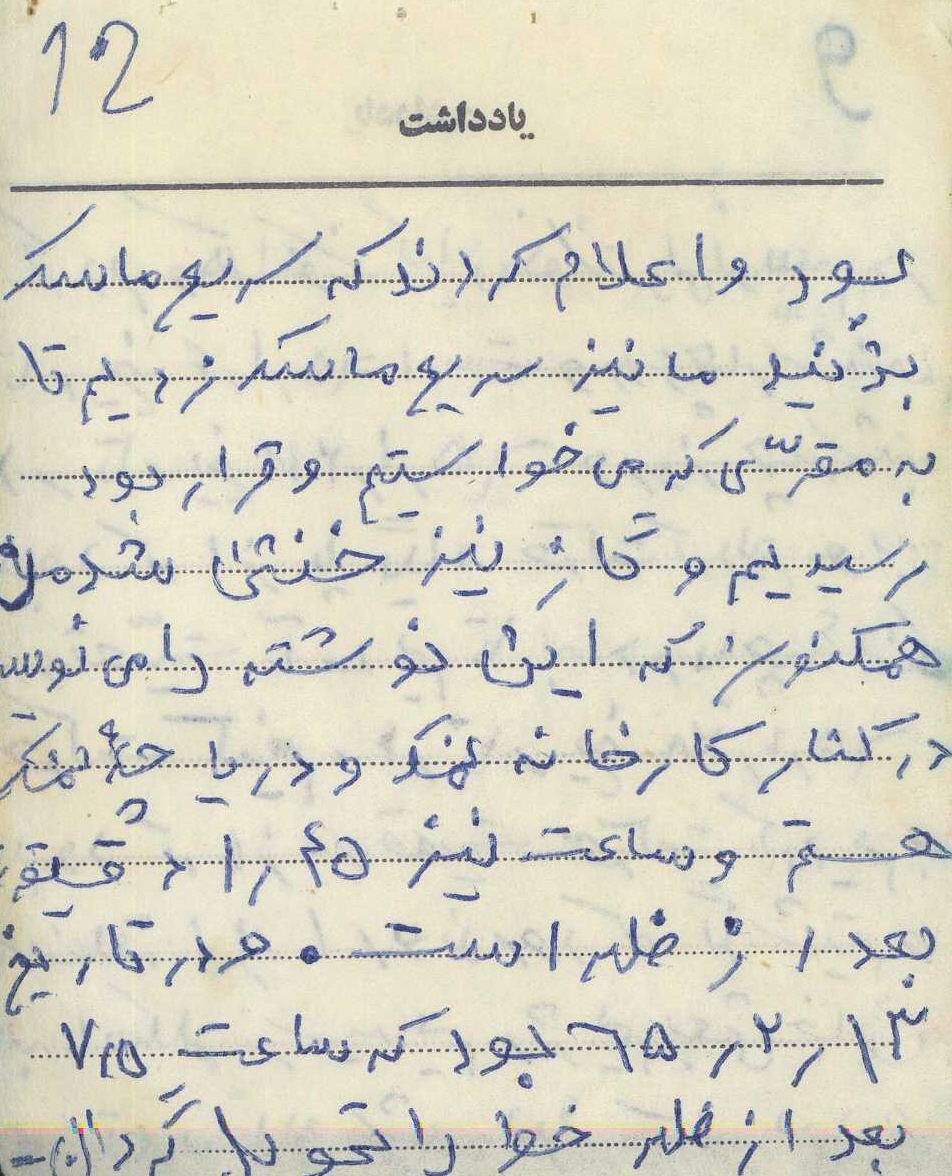 12
یادداشت
بود و اعلام کردند که سریع ماسک
بزنید ما نیز سریع ماسک زدیم تا
به مقرّی که می خواستیم و قرار بود
رسیدیم و گاز نیز خنثی شد
هم‌کنون که این نوشته را می نویس
در کنار کارخانه نمک و دریاچهٔ نمک
هستم و ساعت نیز ۱٫۴۵ دقیقه
بعد از ظهر است. در تاریخ
۱۳٫۲٫۶۵ بود که ساعت ۷٫۵
بعد از ظهر خط را تحویل گردان